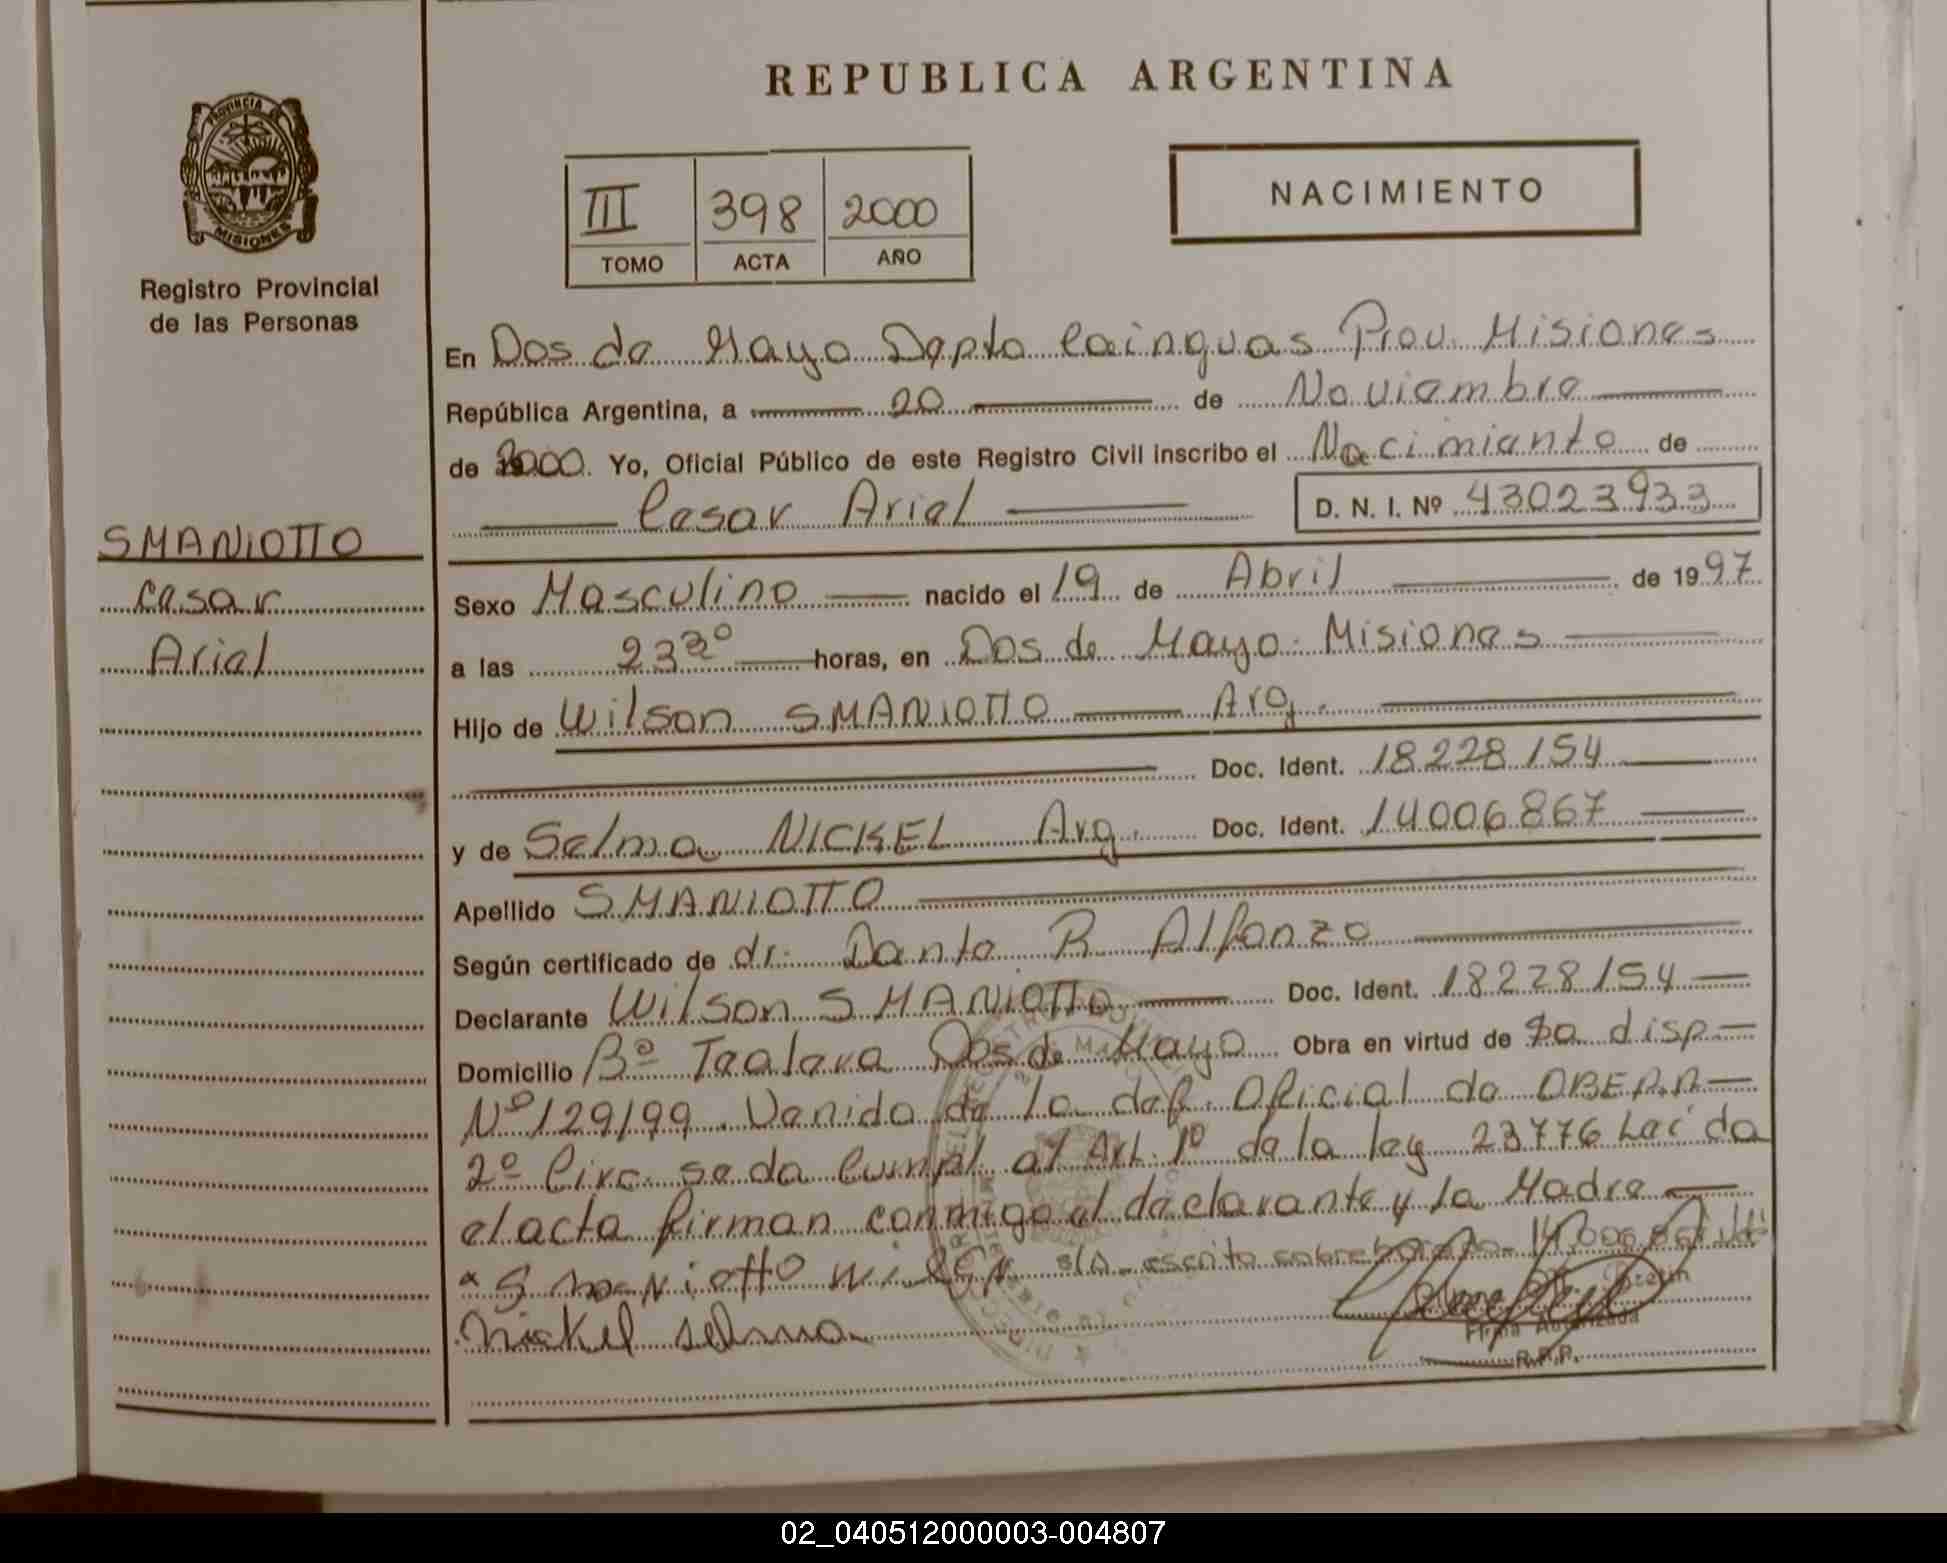 REPUBLICA ARGENTINA
PROVINCIA DE
MISIONES
Registro Provincial
de las Personas
III 398 2000
TOMO ACTA AÑO
NACIMIENTO
En Dos de Mayo Depto Cainguas Prov. Misiones
República Argentina, a 20 de Noviembre
de 2000. Yo, Oficial Público de este Registro Civil inscribo el Nacimiento de
Cesar Ariel D. N. I. Nº 43023933
SMANIOTTO
Cesar
Ariel
Sexo Masculino nacido el 19 de Abril de 1997
a las horas, en Dos de Mayo. Misiones
Hijo de Wilson SMANIOTTO Arg.
Doc. Ident. 18228154
y de Selma NICKEL Arg. Doc. Ident. 14006867
Apellido SMANIOTTO
Según certificado de dr. Dante R Alfonzo
Declarante Wilson SMANIOTTO Doc. Ident. 18228154
Domicilio Bº Tealera Dos de Mayo Obra en virtud de disp
Nº 129/99. Venida de la def. Oficial de OBERA
2º Circ. se da Cumpl. al Art. 1º de la ley 23776 Leída
el acta firman conmigo el declarante y la Madre
x Smaniotto Wilson escrito sobre
Nickel Selma
Firma Autorizada
R.P.P.
02_040512000003-004807